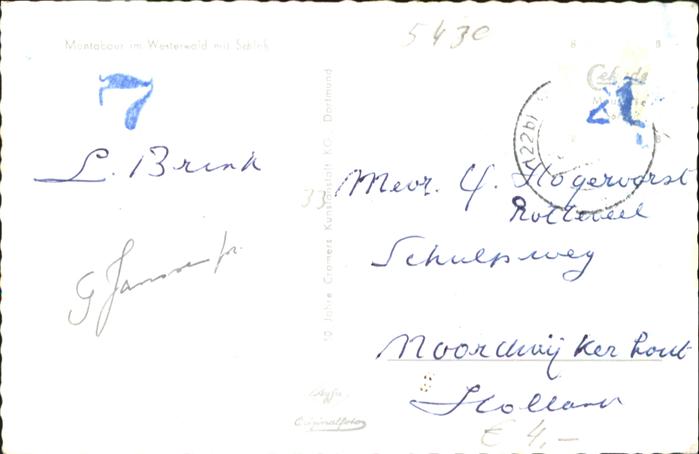 Montabaur im Westerwald mit Schloß
5430
7
L. Brink
G Janssen jr.
33
50 Jahre Cramers Kunstanstalt KG. Dortmund
Mevr. Y. Hogervorst
Schulpweg
Noordwijkerhout
Holland
Originalfoto
€ 4,-